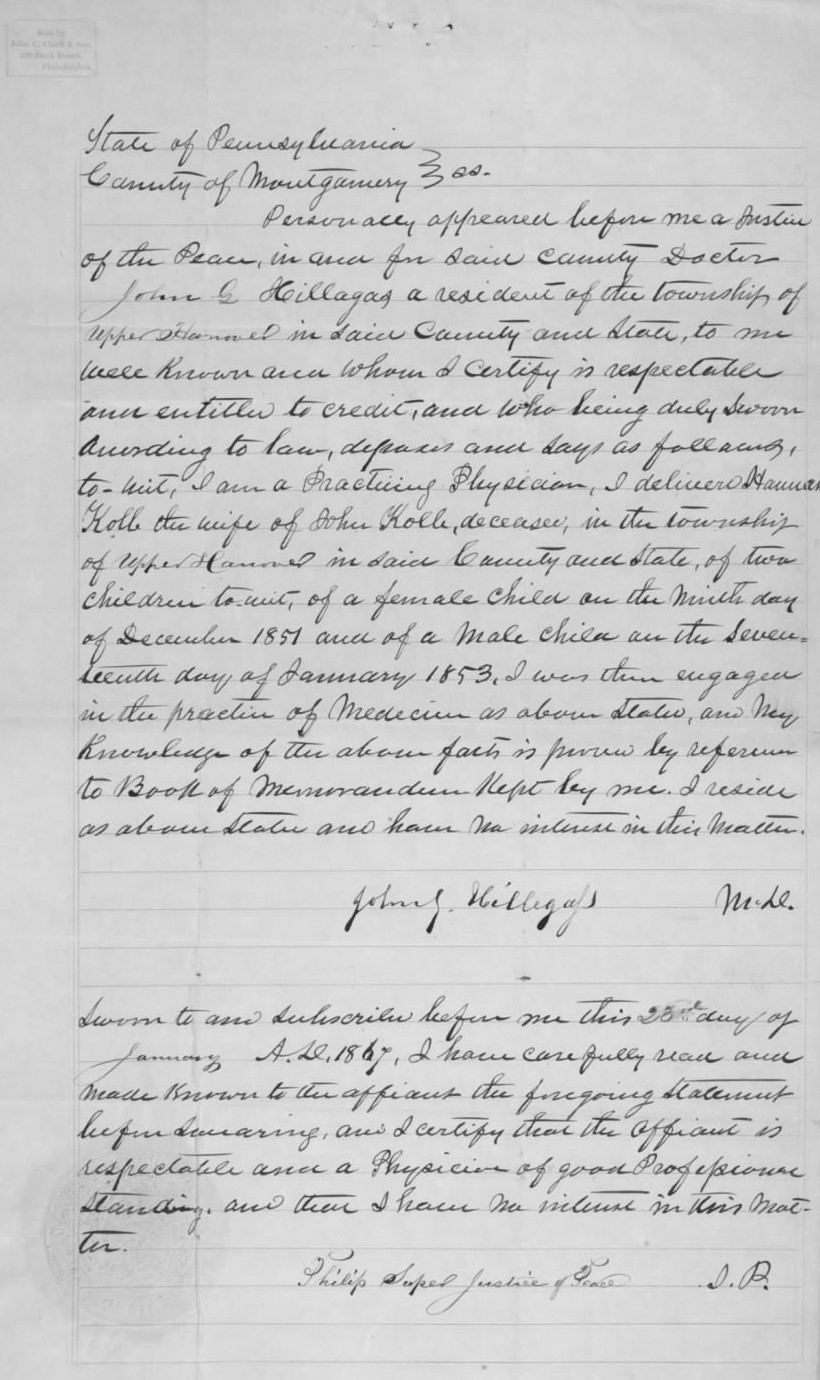 Sold by
John C. Clark & Son,
230 Dock Street,
Philadelphia.
State of Pennsylvania
County of Montgomery } ss.
Personally appeared before me a Justice
of the Peace, in and for said County Doctor
John G Hillagas a resident of the township of
Upper Hanover in said County and State, to me
well Known and whom I certify is respectable
and entitled to credit, and who being duly Sworn
According to law, deposes and says as follows,
to-wit, I am a Practicing Physician, I delivered Hannah
Kolb the wife of John Kolb, deceased, in the township
of Upper Hanover in said County and State, of two
children to wit, of a female child on the Ninth day
of December 1851 and of a Male child on the Seven=
teenth day of January 1853, I was then engaged
in the practice of Medicine as above stated, and My
Knowledge of the above facts is proven by reference
to Book of Memorandum Kept by me. I reside
as above stated and have no interest in this Matter.
John G. Hillegass M.D.
Sworn to and subscribed before me this 23rd day of
January A.D. 1867, I have carefully read and
made Known to the affiant the foregoing Statement
before swearing, and I certify that the affiant is
respectable and a Physician of good Professional
Standing, and that I have no interest in this Mat-
ter.
Philip Super Justice of Peace J.P.